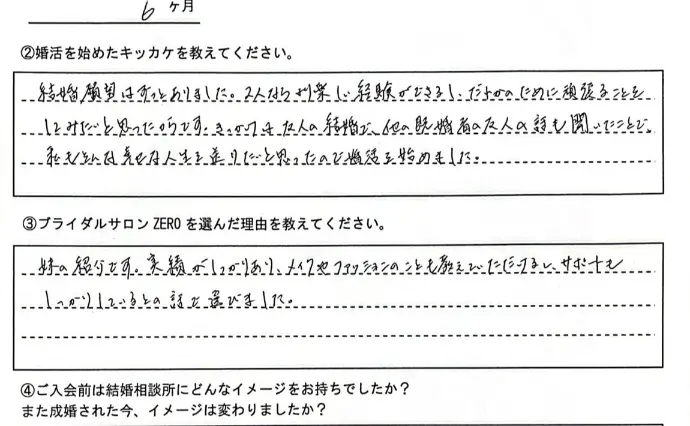 6 ケ月
②婚活を始めたキッカケを教えてください。
結婚願望はずっとありました。2人なら刺激しい経験ができるし、だれかのために頑張ることを
してみたいと思ったからです。きっかけは友人の結婚で、他の既婚者の友人の話も聞いたことで、
私もそんな幸せな人生を送りたいと思ったので婚活を始めました。
③ブライダルサロン ZERO を選んだ理由を教えてください。
妹の紹介です。実績がしっかりあり、メイクやファッションのことも教えていただけるし、サポートも
しっかりしているとの話で選びました。
④ご入会前は結婚相談所にどんなイメージをお持ちでしたか？
また成婚された今、イメージは変わりましたか？